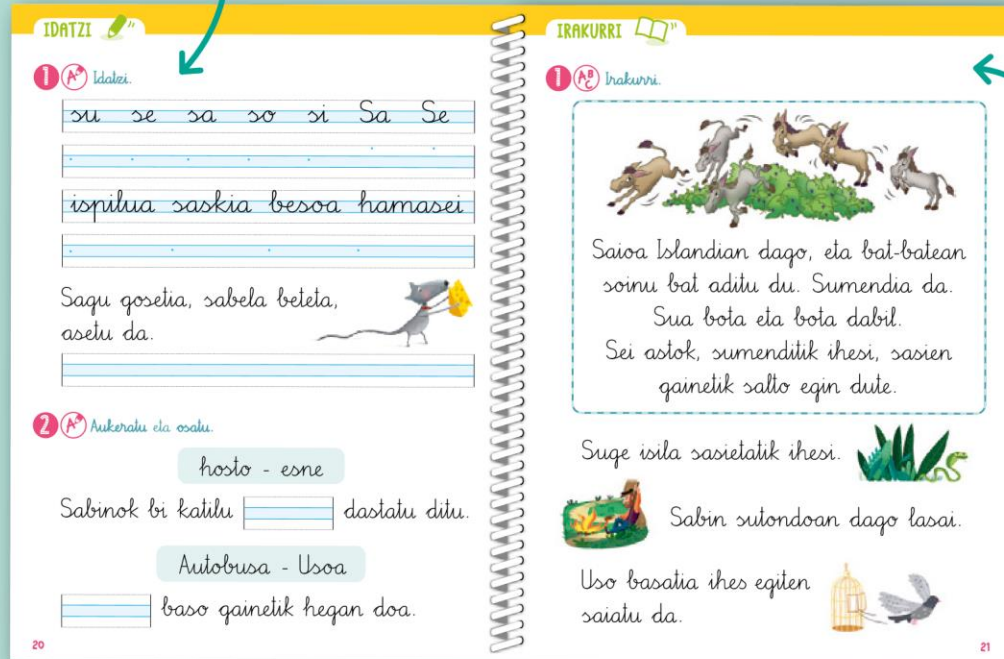 IDATZI
1 Idatzi.
su se sa so si Sa Se
ispilua saskia besoa hamasei
Sagu gosetia, sabela beteta,
asetu da.
2 Aukeratu eta osatu.
hosto - esne
Sabinok bi katilu dastatu ditu.
Autobusa - Usoa
baso gainetik hegan doa.
20
IRAKURRI
1 Irakurri.
Saioa Islandian dago, eta bat-batean
soinu bat aditu du. Sumendia da.
Sua bota eta bota dabil.
Sei astok, sumenditik ihesi, sasien
gainetik salto egin dute.
Suge isila sasietatik ihesi.
Sabin sutondoan dago lasai.
Uso basatia ihes egiten
saiatu da.
21